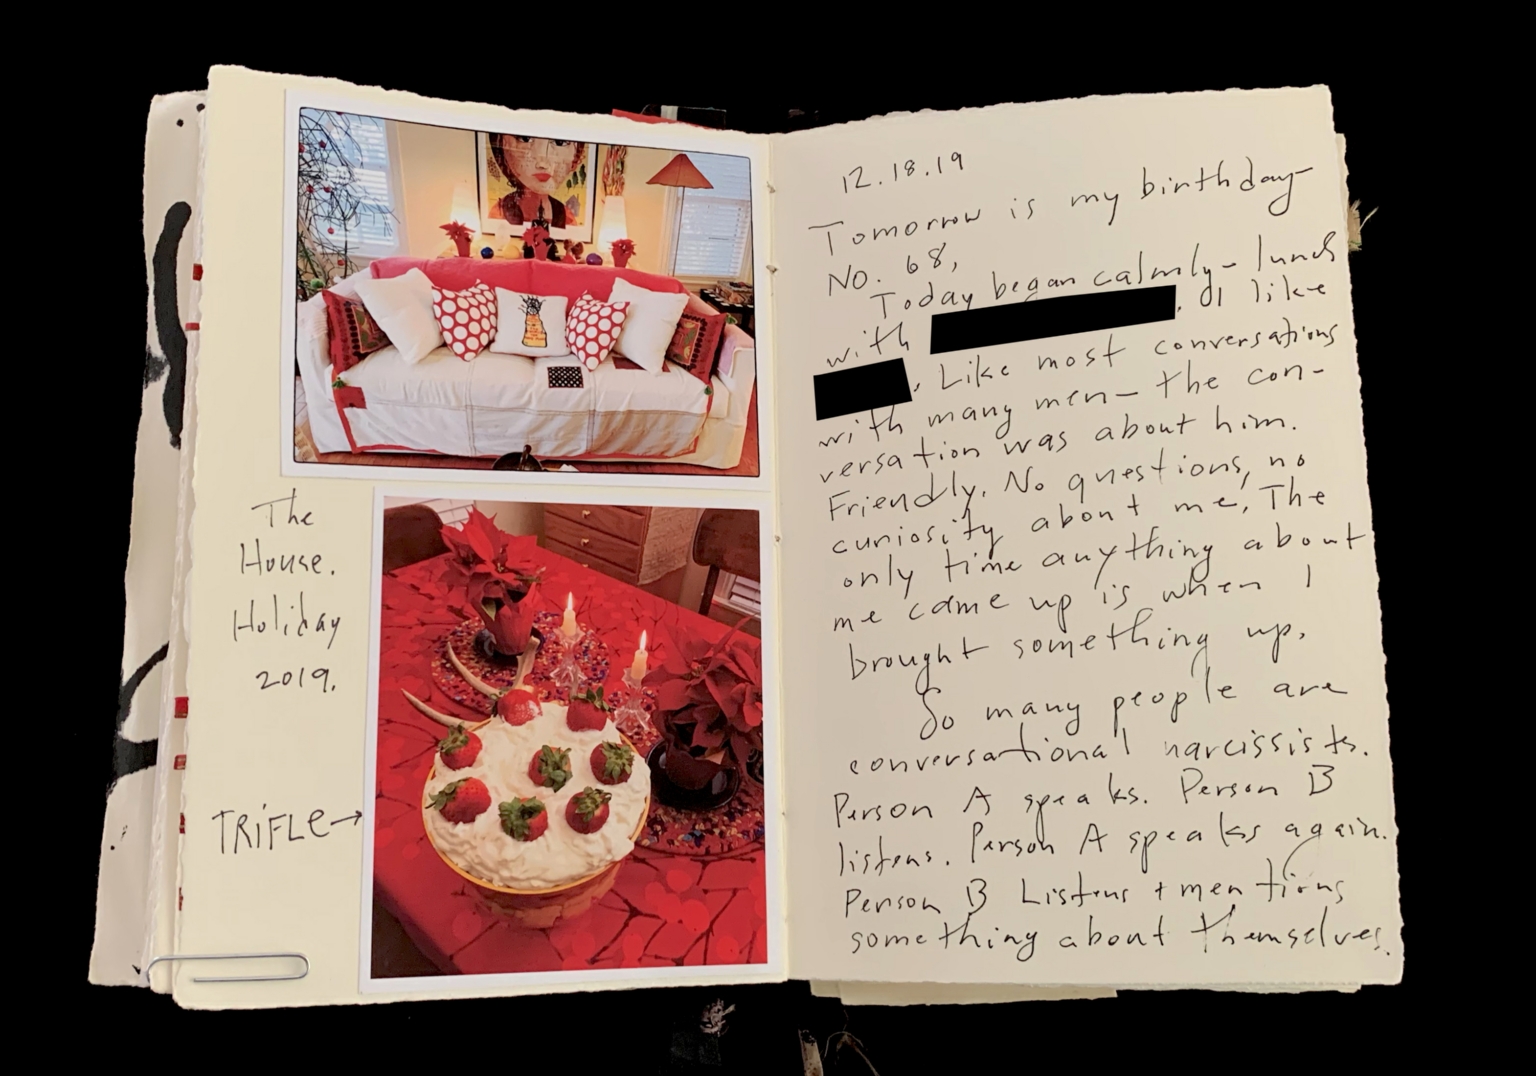 The
House.
Holiday
2019.
TRiFLe→
12.18.19
Tomorrow is my birthday—
No. 68,
Today began calmly— lunch
with
. I like
. Like most conversations
with many men— the con-
versation was about him.
Friendly. No questions, no
curiosity about me, The
only time anything about
me came up is when I
brought something up.
So many people are
conversational narcissists.
Person A speaks. Person B
listens. Person A speaks again.
Person B Listens + mentions
something about themselves.